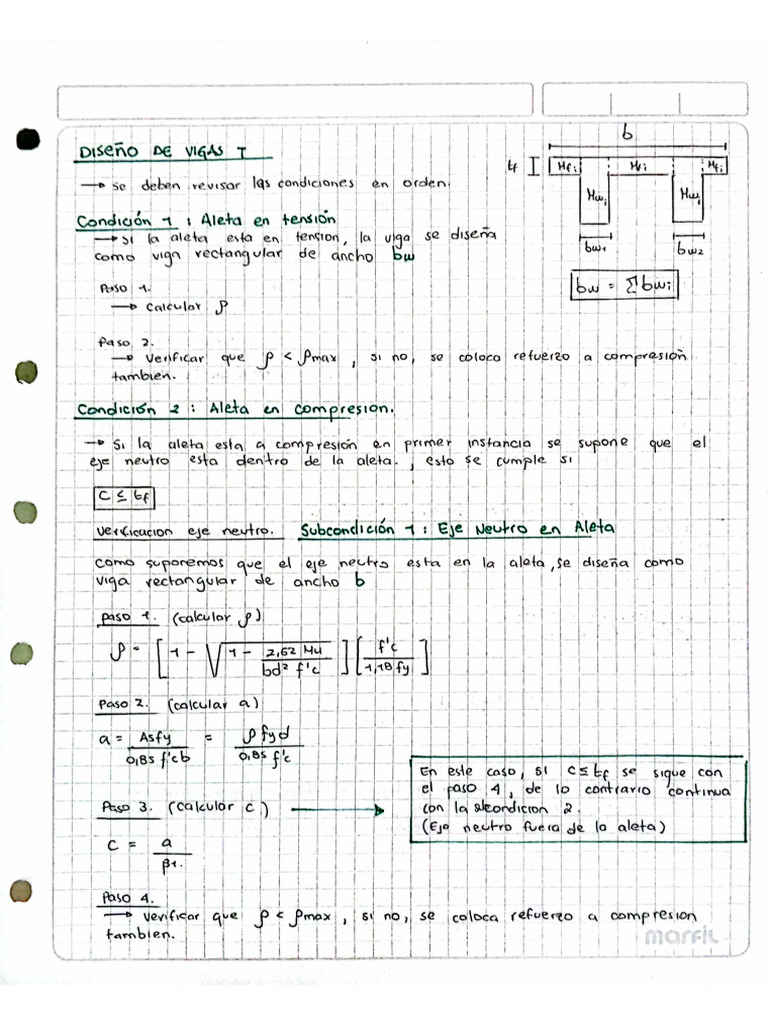 DISEÑO DE VIGAS T
b
→ se deben revisar las condiciones en orden.
tf
Mfi Mfi Mfi
Mwi Mwi
Condición 1 : Aleta en tensión
→ si la aleta esta en tension, la viga se diseña
como viga rectangular de ancho bw
bw1 bw2
bw = Σbwi
Paso 1.
→ Calcular ρ
Paso 2.
→ Verificar que ρ < ρmax , si no, se coloca refuerzo a compresión
tambien.
Condición 2 : Aleta en compresion.
→ Si la aleta esta a compresión en primer instancia se supone que el
eje neutro esta dentro de la aleta. , esto se cumple si
C ≤ tf
Verificacion eje neutro. Subcondición 1 : Eje Neutro en Aleta
como suponemos que el eje neutro esta en la aleta, se diseña como
viga rectangular de ancho b
paso 1. (calcular ρ)
ρ = [1 - √(1 - 2,62 Mu / bd² f'c)] [f'c / 1,18 fy]
Paso 2. (calcular a)
a = Asfy / 0,85 f'cb = ρ fyd / 0,85 f'c
En este caso, si C ≤ tf se sigue con
el paso 4, de lo contrario continua
con la condicion 2.
(Eje neutro fuera de la aleta)
Paso 3. (calcular c) →
C = a / β1.
Paso 4.
→ Verificar que ρ < ρmax , si no, se coloca refuerzo a compresion
tambien.
marfil